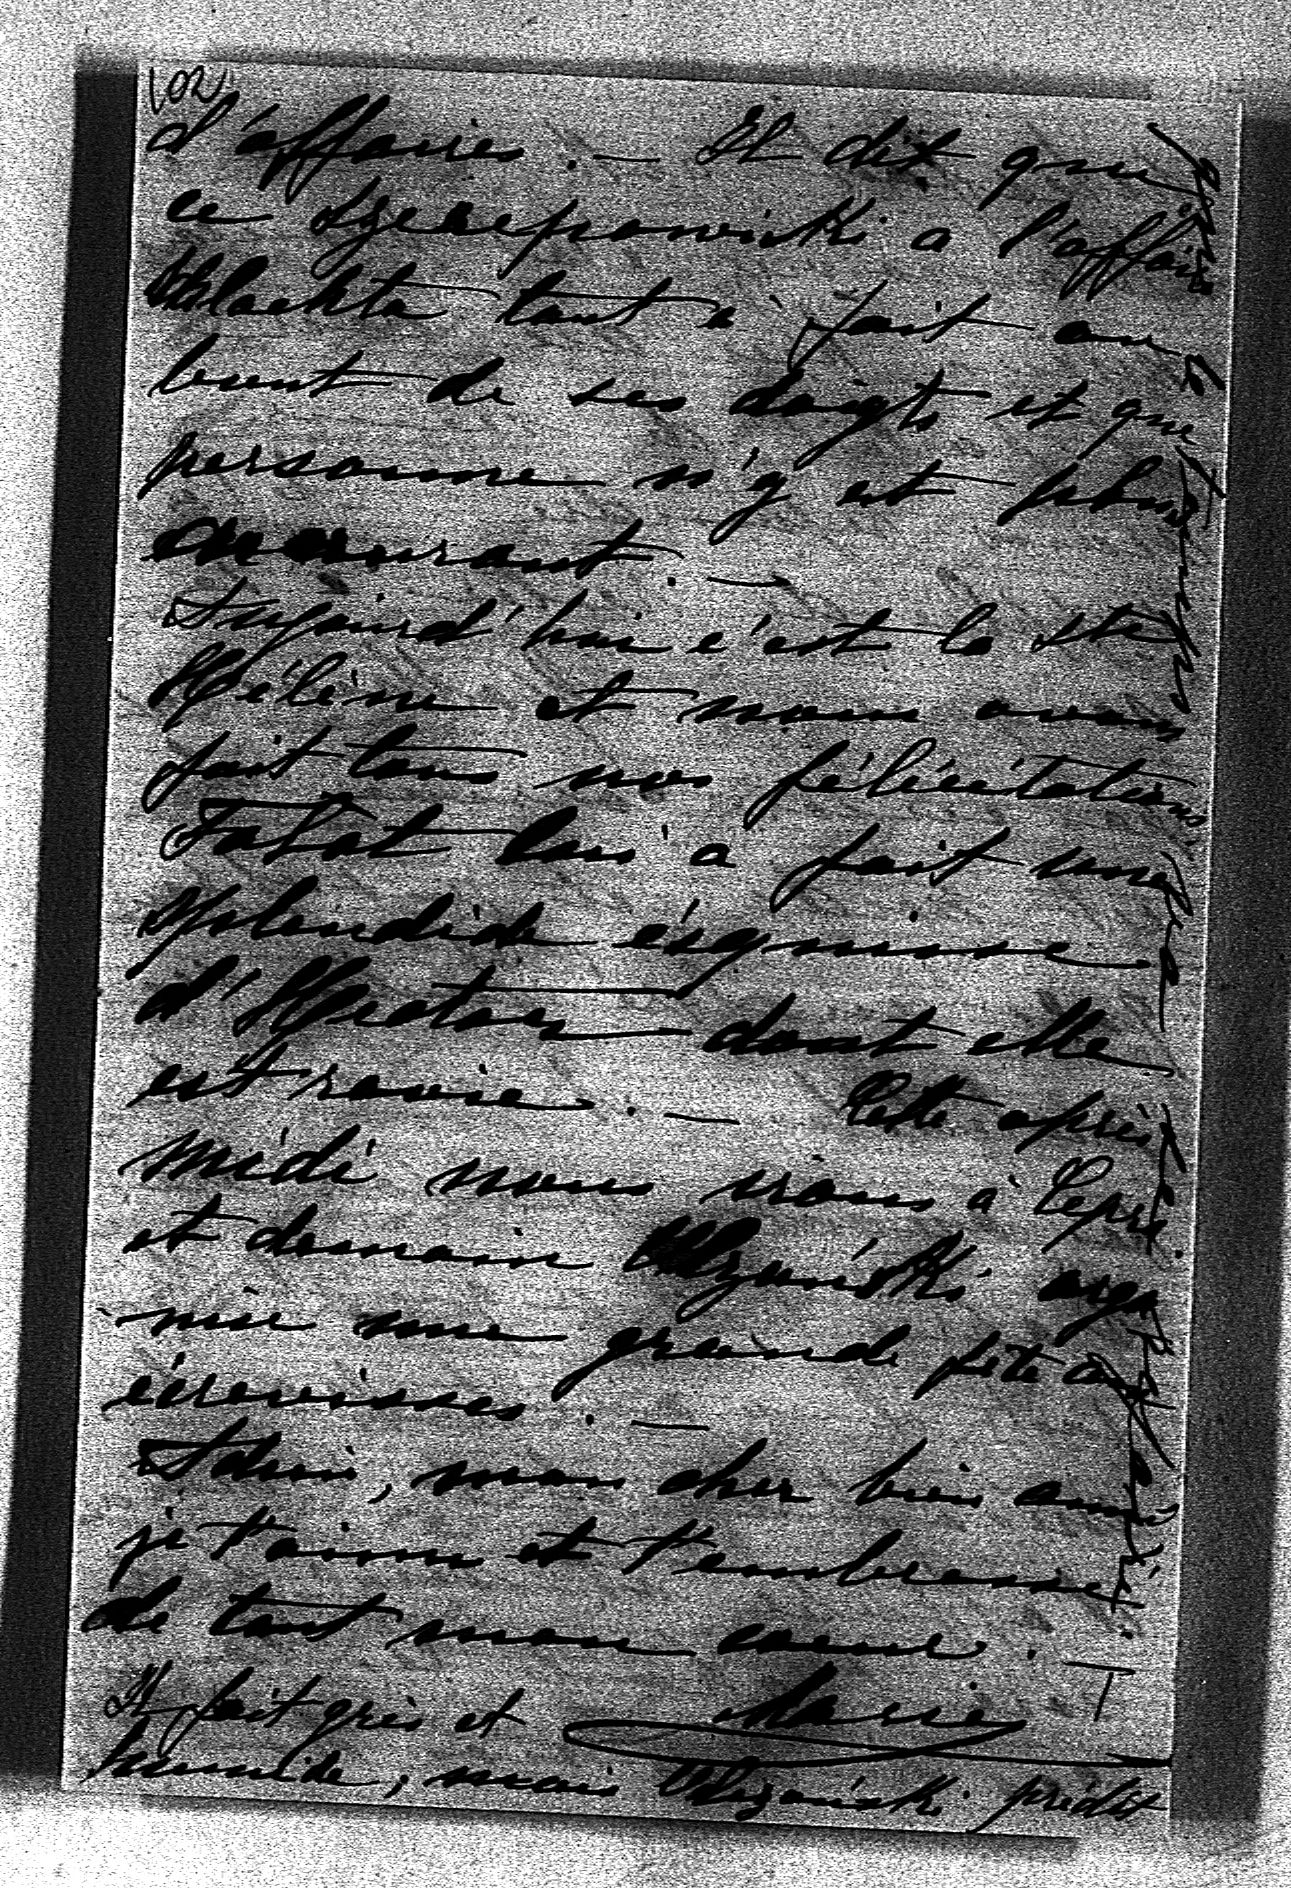 102
d'affaires. — Il dit que
ce Szczepanowski a l'affaire
tout à fait au
bout de ses doigts et que
personne n'y est plus
au courant. —
Aujourd'hui c'est la Ste
Hélène et nous avons
fait tous nos félécitations
Fałat lui a fait une
splendide ésquisse
d'Hector dont elle
est ravie. — Cette après
midi nous irons à
et demain Wyzinski orga
nise une grande fête aux
écrevisses. —
Adieu, mon cher bien aimé
je t'aime et t'embrasse
de tout mon coeur. —
Marie
Il fait gris et
humide, mais prédit
que le temps